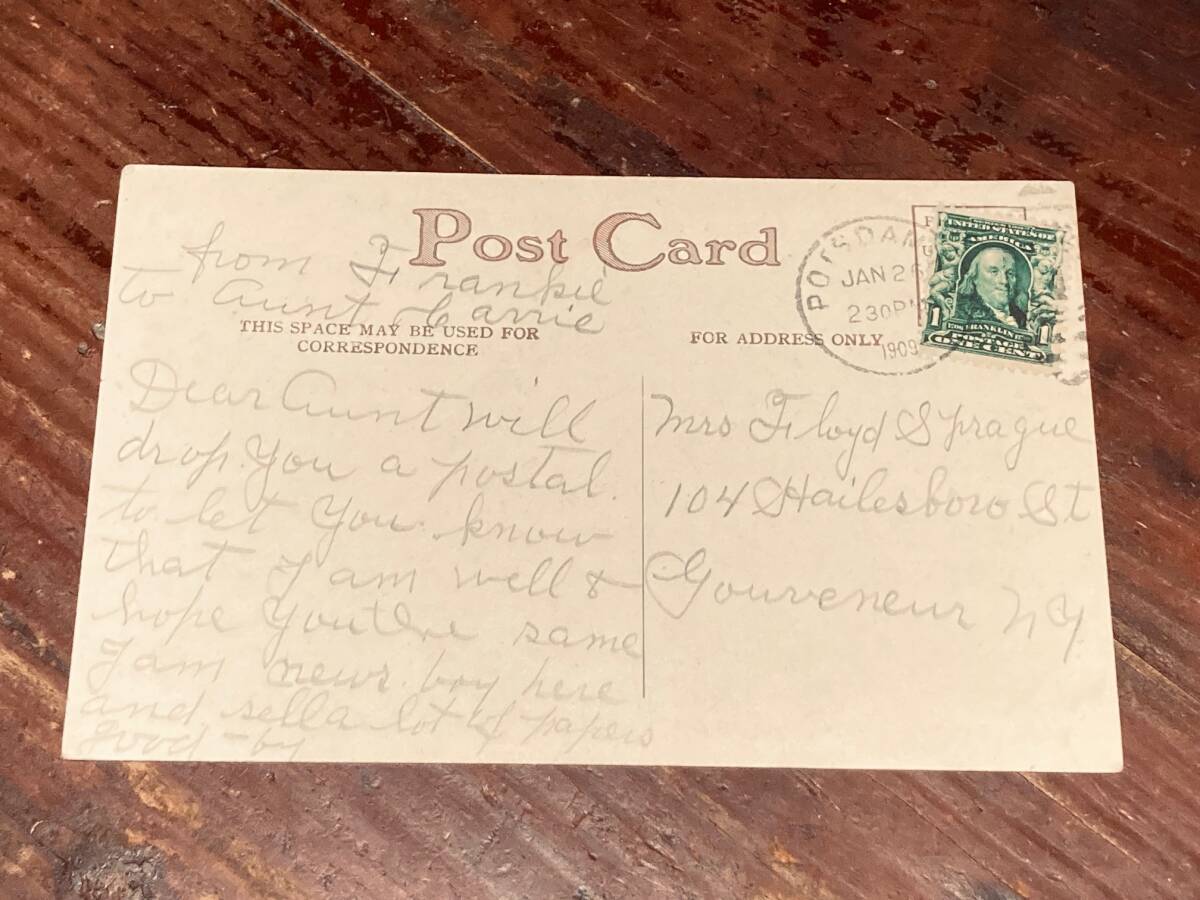 Post Card
from Frankie
to Aunt Carrie
THIS SPACE MAY BE USED FOR
CORRESPONDENCE
FOR ADDRESS ONLY
Dear Aunt will
drop You a postal.
to let You know
that I am well &
hope You the same
I am news boy here
and sell a lot of papers
good-by
POTSDAM
JAN 25
2 30 PM
1909
UNITED STATES OF
AMERICA
1 1
FRANKLIN
POSTAGE
ONE CENT
Mrs Floyd Sprague
104 Hailesboro St
Gouveneur NY